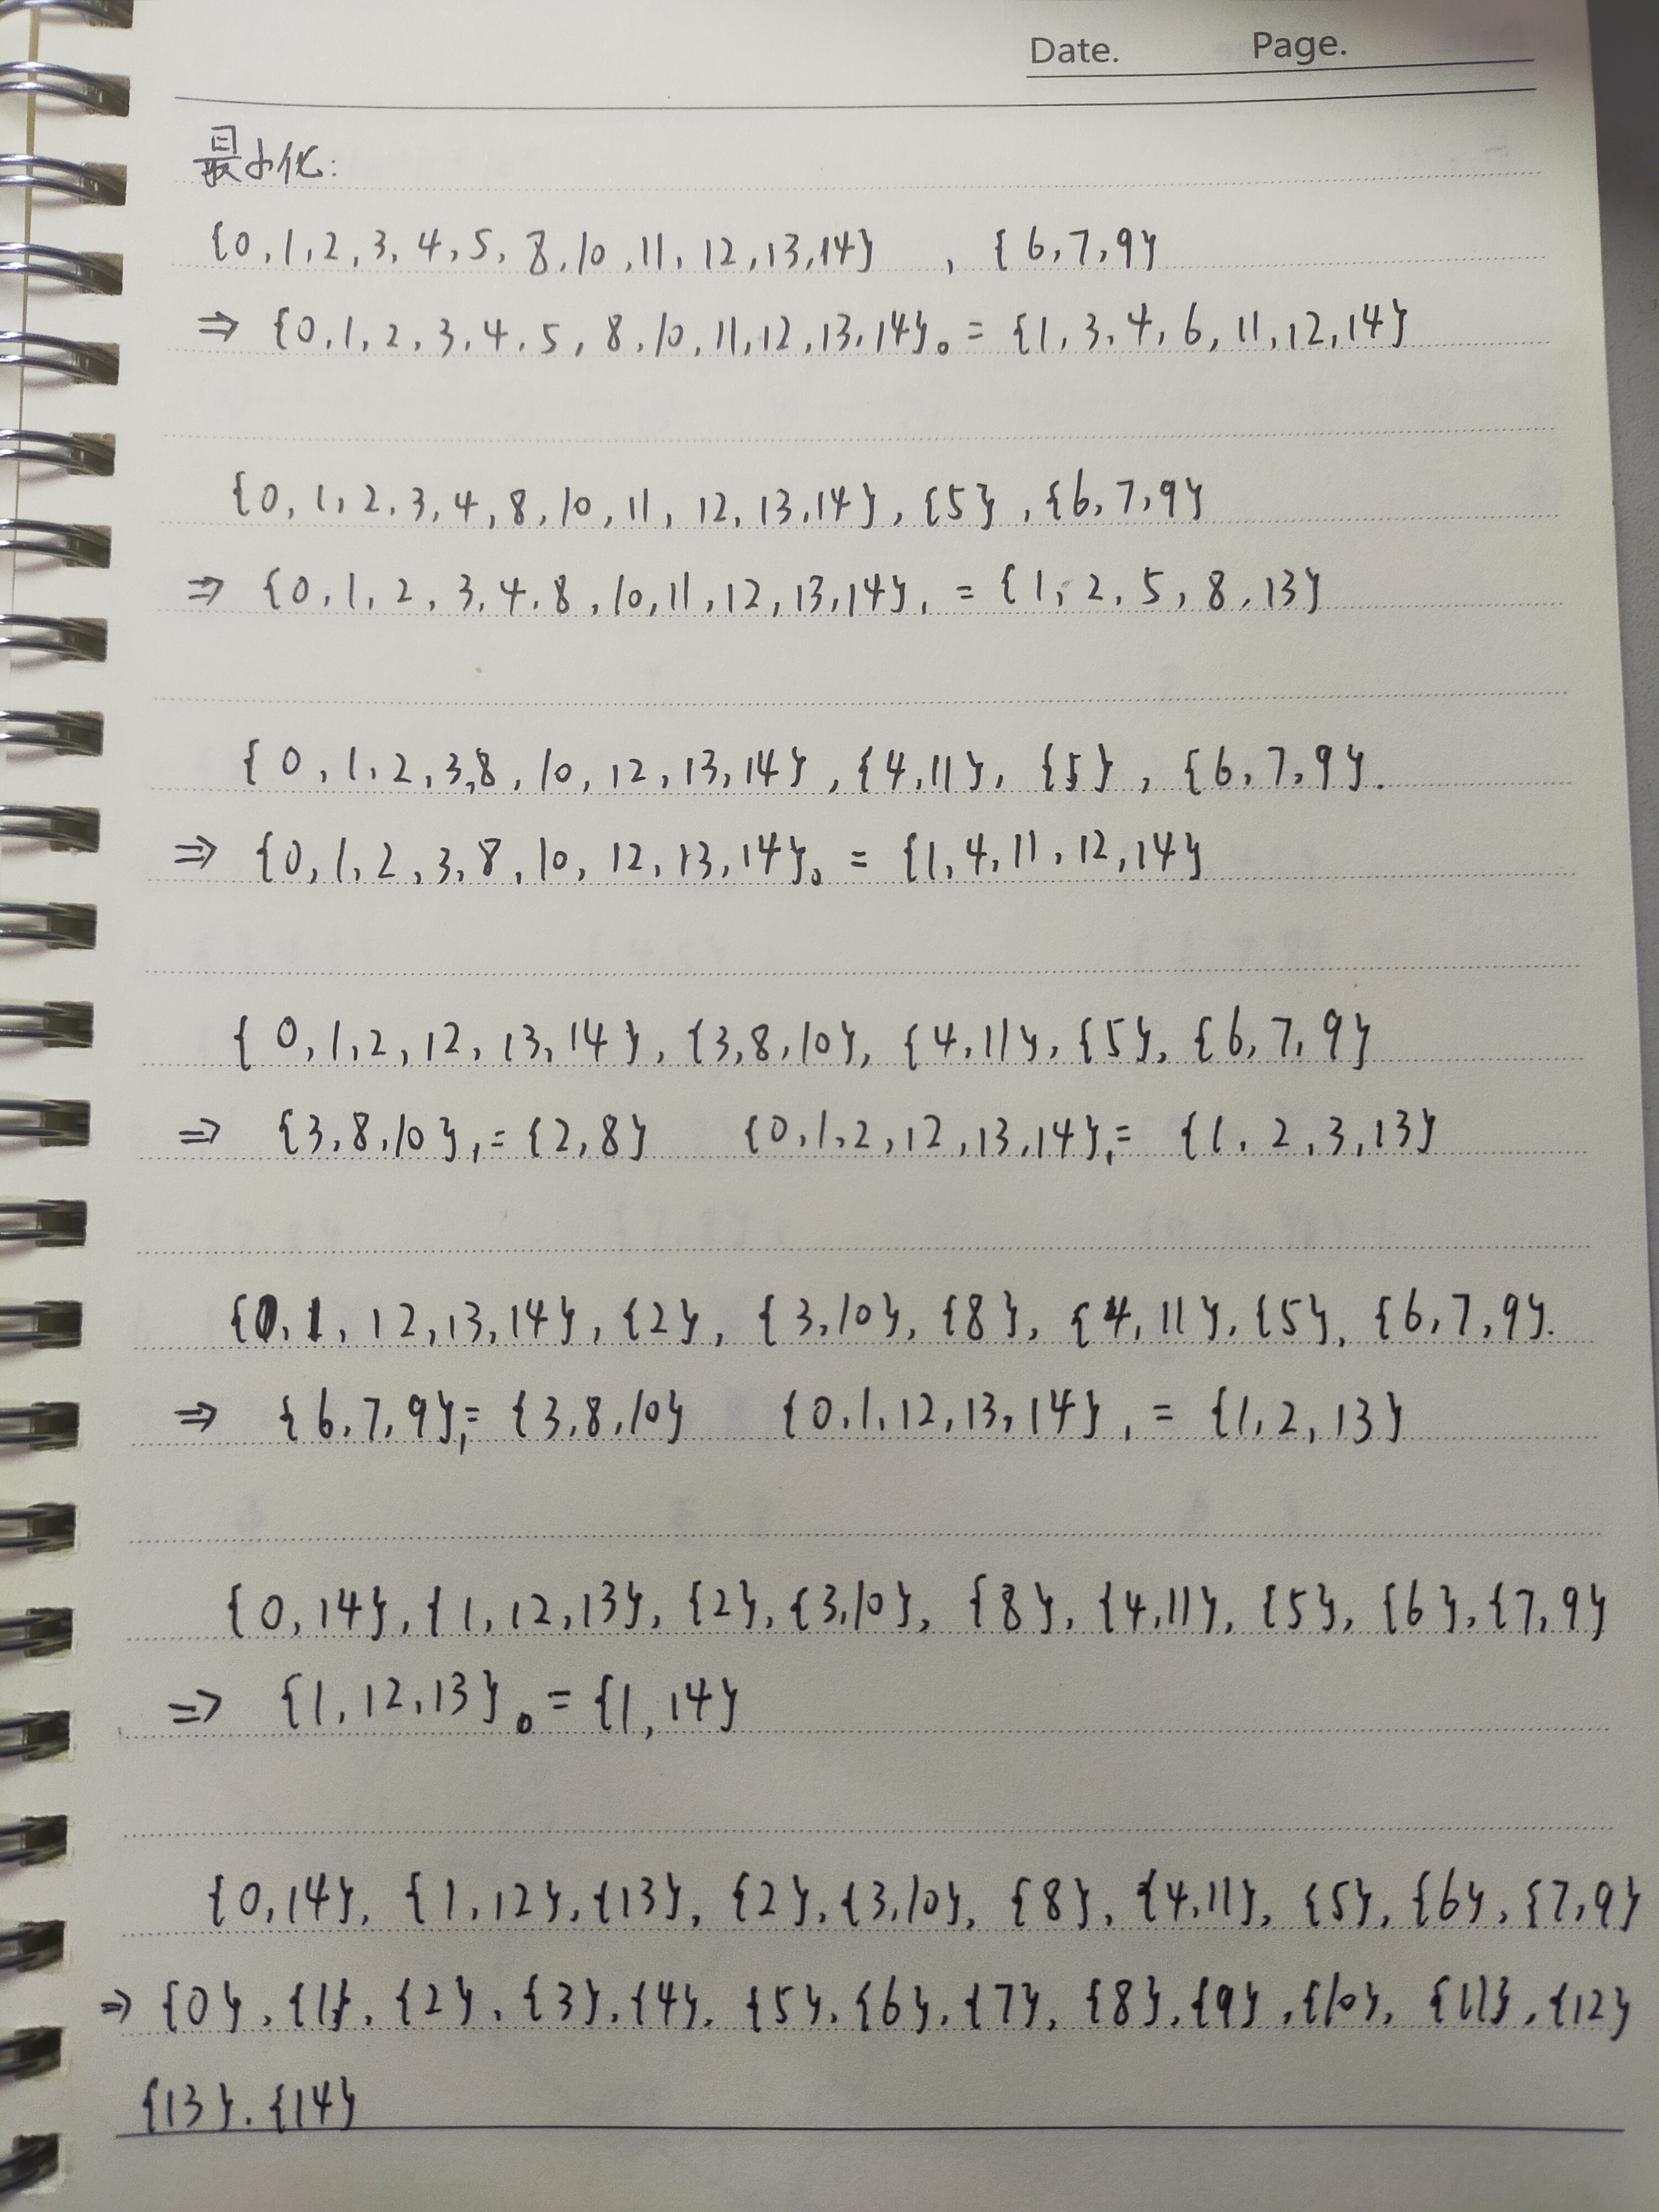 Date. Page.
最小化:
{0,1,2,3,4,5,8,10,11,12,13,14} , {6,7,9}
⇒ {0,1,2,3,4,5,8,10,11,12,13,14}₀ = {1,3,4,6,11,12,14}
{0,1,2,3,4,8,10,11,12,13,14}, {5}, {6,7,9}
⇒ {0,1,2,3,4,8,10,11,12,13,14}₁ = {1,2,5,8,13}
{0,1,2,3,8,10,12,13,14}, {4,11}, {5}, {6,7,9}.
⇒ {0,1,2,3,8,10,12,13,14}₀ = {1,4,11,12,14}
{0,1,2,12,13,14}, {3,8,10}, {4,11}, {5}, {6,7,9}
⇒ {3,8,10}₁ = {2,8} {0,1,2,12,13,14}₁ = {1,2,3,13}
{0,1,12,13,14}, {2}, {3,10}, {8}, {4,11}, {5}, {6,7,9}.
⇒ {6,7,9}₁ = {3,8,10} {0,1,12,13,14}₁ = {1,2,13}
{0,14}, {1,12,13}, {2}, {3,10}, {8}, {4,11}, {5}, {6}, {7,9}
⇒ {1,12,13}₀ = {1,14}
{0,14}, {1,12}, {13}, {2}, {3,10}, {8}, {4,11}, {5}, {6}, {7,9}
⇒ {0}, {1}, {2}, {3}, {4}, {5}, {6}, {7}, {8}, {9}, {10}, {11}, {12}
{13}, {14}